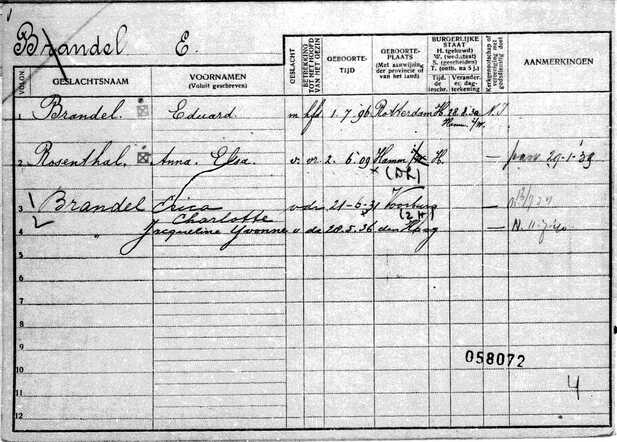 Brandel E.
VOLGN.
GESLACHTSNAAM
VOORNAMEN
(Voluit geschreven)
GESLACHT
BETREKKING TOT HET HOOFD VAN HET GEZIN
GEBOORTE-
TIJD
GEBOORTE-
PLAATS
(Met aanwijzing der provincie of van het land)
BURGERLIJKE
STAAT
H. (gehuwd)
W. (wed.staat)
S. (gescheiden)
T. (ontb. na 5 j.)
Tijd. de
Verander. dag-
teekening
Kerkgenootschap of
AANMERKINGEN
1 Brandel. Eduard m hfd 1.7.96 Rotterdam H. N.I
Hamm
2 Rosenthal, Anna Elsa v. vr. 2.6.09 Hamm H. — 29-1-39
3 Brandel Erica v dr 21-6-31 Voorburg —
Charlotte (Z H)
4 " Jacqueline Yvonne v de 28.5.36 den Haag — N. 11-7-40
5
6
7
8
9
10
11
12
058072
4